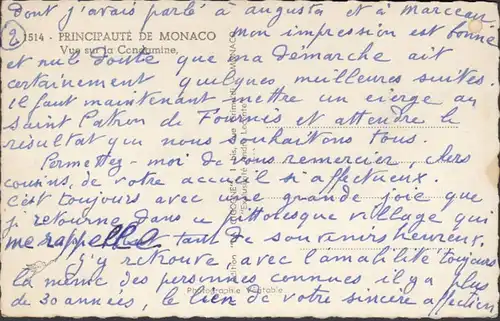 dont j'avais parlé à augusta et à Marceau
2
1514 - PRINCIPAUTÉ DE MONACO
Vue sur la Condamine,
mon impression est bonne
et nul doute que ma démarche ait
certainement quelques meilleures suites.
Il faut maintenant mettre un cierge au
Saint Patron de Fournès et attendre le
résultat que nous souhaitons tous.
Permettez-moi de vous remercier, chers
cousins, de votre accueil si affectueux.
C'est toujours avec une grande joie que
je retourne dans ce pittoresque village qui
me rappelle tant de souvenirs heureux.
J'y retrouve avec l'amabilité toujours
la même des personnes connues il y a plus
de 30 années, le lien de votre sincère affection
Photographie Véritable